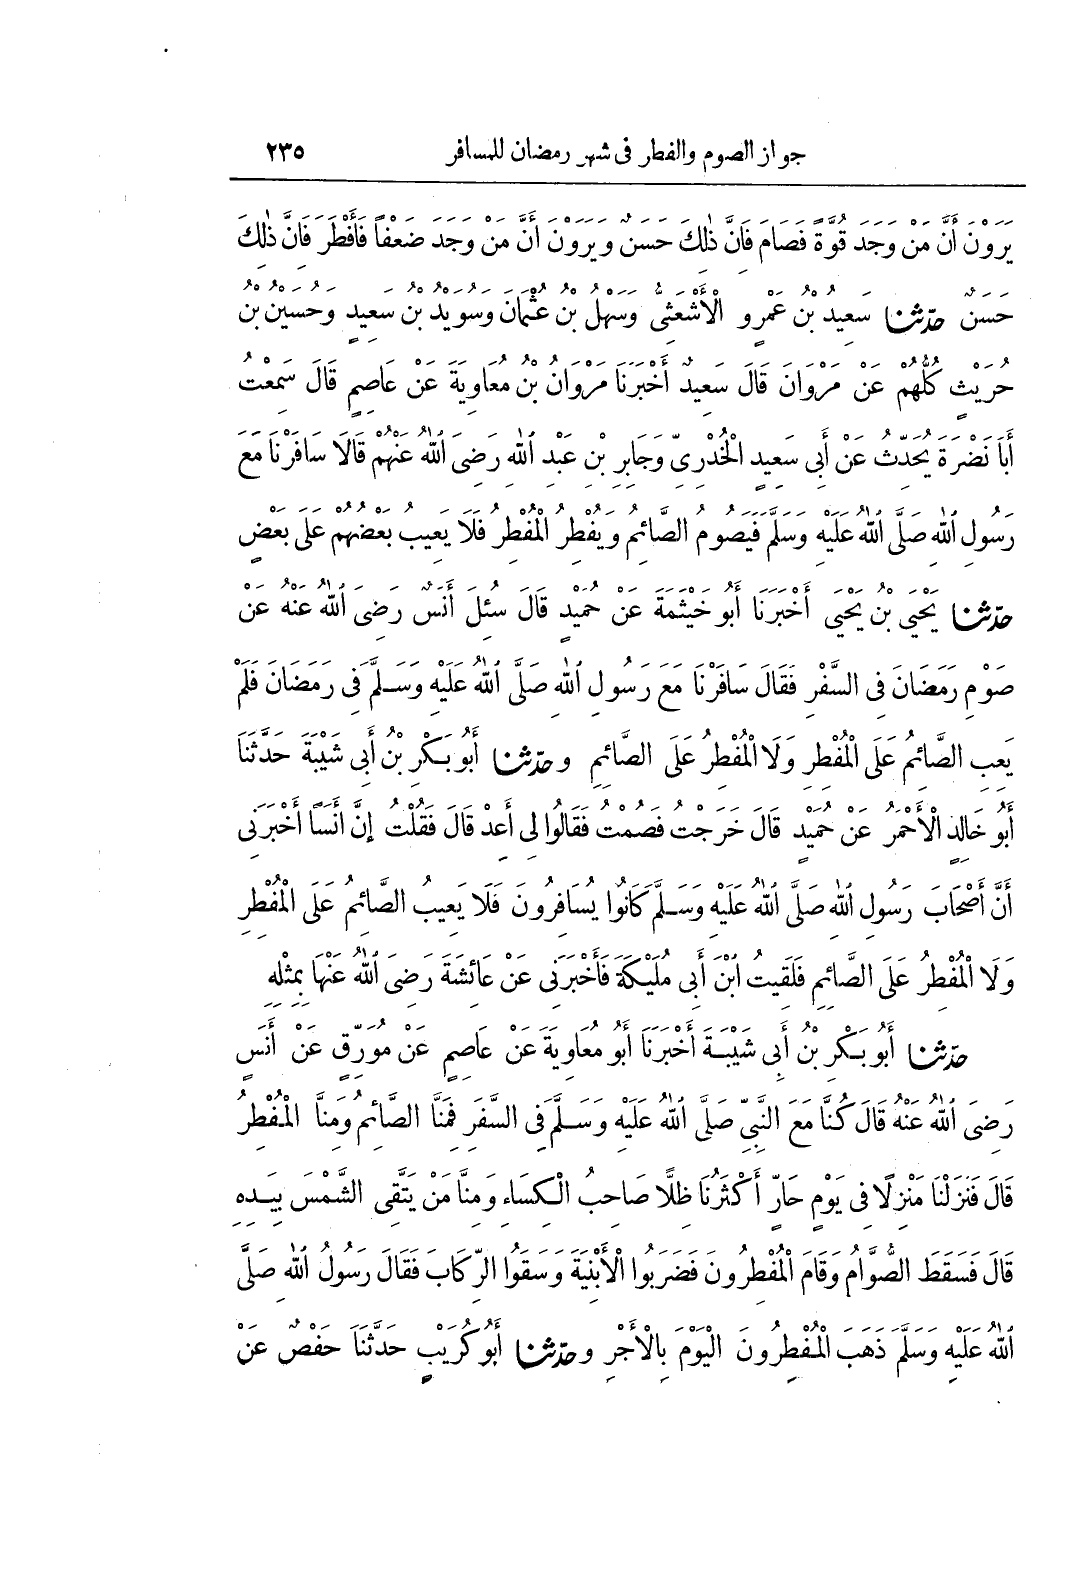 جواز الصوم والفطر فى شهر رمضان للمسافر ٢٣٥
يَرَوْنَ أَنَّ مَنْ وَجَدَ قُوَّةً فَصَامَ فَانَّ ذٰلِكَ حَسَنٌ وَيَرَوْنَ أَنَّ مَنْ وَجَدَ ضَعْفًا فَأَفْطَرَ فَانَّ ذٰلِكَ
حَسَنٌ حَدَّثَنَا سَعِيدُ بْنُ عَمْرٍو الْأَشْعَثِىُّ وَسَهْلُ بْنُ عُثْمَانَ وَسُوَيْدُ بْنُ سَعِيدٍ وَحُسَيْنُ بْنُ
حُرَيْثٍ كُلُّهُمْ عَنْ مَرْوَانَ قَالَ سَعِيدٌ أَخْبَرَنَا مَرْوَانُ بْنُ مُعَاوِيَةَ عَنْ عَاصِمٍ قَالَ سَمِعْتُ
أَبَا نَضْرَةَ يُحَدِّثُ عَنْ أَبِى سَعِيدٍ الْخُدْرِىِّ وَجَابِرِ بْنِ عَبْدِ اللهِ رَضِىَ اللهُ عَنْهُمْ قَالَا سَافَرْنَا مَعَ
رَسُولِ اللهِ صَلَّى اللهُ عَلَيْهِ وَسَلَّمَ فَيَصُومُ الصَّائِمُ وَيُفْطِرُ الْمُفْطِرُ فَلَا يَعِيبُ بَعْضُهُمْ عَلَى بَعْضٍ
حَدَّثَنَا يَحْيَى بْنُ يَحْيَى أَخْبَرَنَا أَبُو خَيْثَمَةَ عَنْ حُمَيْدٍ قَالَ سُئِلَ أَنَسٌ رَضِىَ اللهُ عَنْهُ عَنْ
صَوْمِ رَمَضَانَ فِى السَّفَرِ فَقَالَ سَافَرْنَا مَعَ رَسُولِ اللهِ صَلَّى اللهُ عَلَيْهِ وَسَلَّمَ فِى رَمَضَانَ فَلَمْ
يَعِبِ الصَّائِمُ عَلَى الْمُفْطِرِ وَلَا الْمُفْطِرُ عَلَى الصَّائِمِ وَحَدَّثَنَا أَبُو بَكْرِ بْنُ أَبِى شَيْبَةَ حَدَّثَنَا
أَبُو خَالِدٍ الْأَحْمَرُ عَنْ حُمَيْدٍ قَالَ خَرَجْتُ فَصُمْتُ فَقَالُوا لِى أَعِدْ قَالَ فَقُلْتُ إِنَّ أَنَسًا أَخْبَرَنِى
أَنَّ أَصْحَابَ رَسُولِ اللهِ صَلَّى اللهُ عَلَيْهِ وَسَلَّمَ كَانُوا يُسَافِرُونَ فَلَا يَعِيبُ الصَّائِمُ عَلَى الْمُفْطِرِ
وَلَا الْمُفْطِرُ عَلَى الصَّائِمِ فَلَقِيتُ ابْنَ أَبِى مُلَيْكَةَ فَأَخْبَرَنِى عَنْ عَائِشَةَ رَضِىَ اللهُ عَنْهَا بِمِثْلِهِ
حَدَّثَنَا أَبُو بَكْرِ بْنُ أَبِى شَيْبَةَ أَخْبَرَنَا أَبُو مُعَاوِيَةَ عَنْ عَاصِمٍ عَنْ مُوَرِّقٍ عَنْ أَنَسٍ
رَضِىَ اللهُ عَنْهُ قَالَ كُنَّا مَعَ النَّبِىِّ صَلَّى اللهُ عَلَيْهِ وَسَلَّمَ فِى السَّفَرِ فَمِنَّا الصَّائِمُ وَمِنَّا الْمُفْطِرُ
قَالَ فَنَزَلْنَا مَنْزِلًا فِى يَوْمٍ حَارٍّ أَكْثَرُنَا ظِلًّا صَاحِبُ الْكِسَاءِ وَمِنَّا مَنْ يَتَّقِى الشَّمْسَ بِيَدِهِ
قَالَ فَسَقَطَ الصُّوَّامُ وَقَامَ الْمُفْطِرُونَ فَضَرَبُوا الْأَبْنِيَةَ وَسَقَوُا الرِّكَابَ فَقَالَ رَسُولُ اللهِ صَلَّى
اللهُ عَلَيْهِ وَسَلَّمَ ذَهَبَ الْمُفْطِرُونَ الْيَوْمَ بِالْأَجْرِ وَحَدَّثَنَا أَبُو كُرَيْبٍ حَدَّثَنَا حَفْصٌ عَنْ